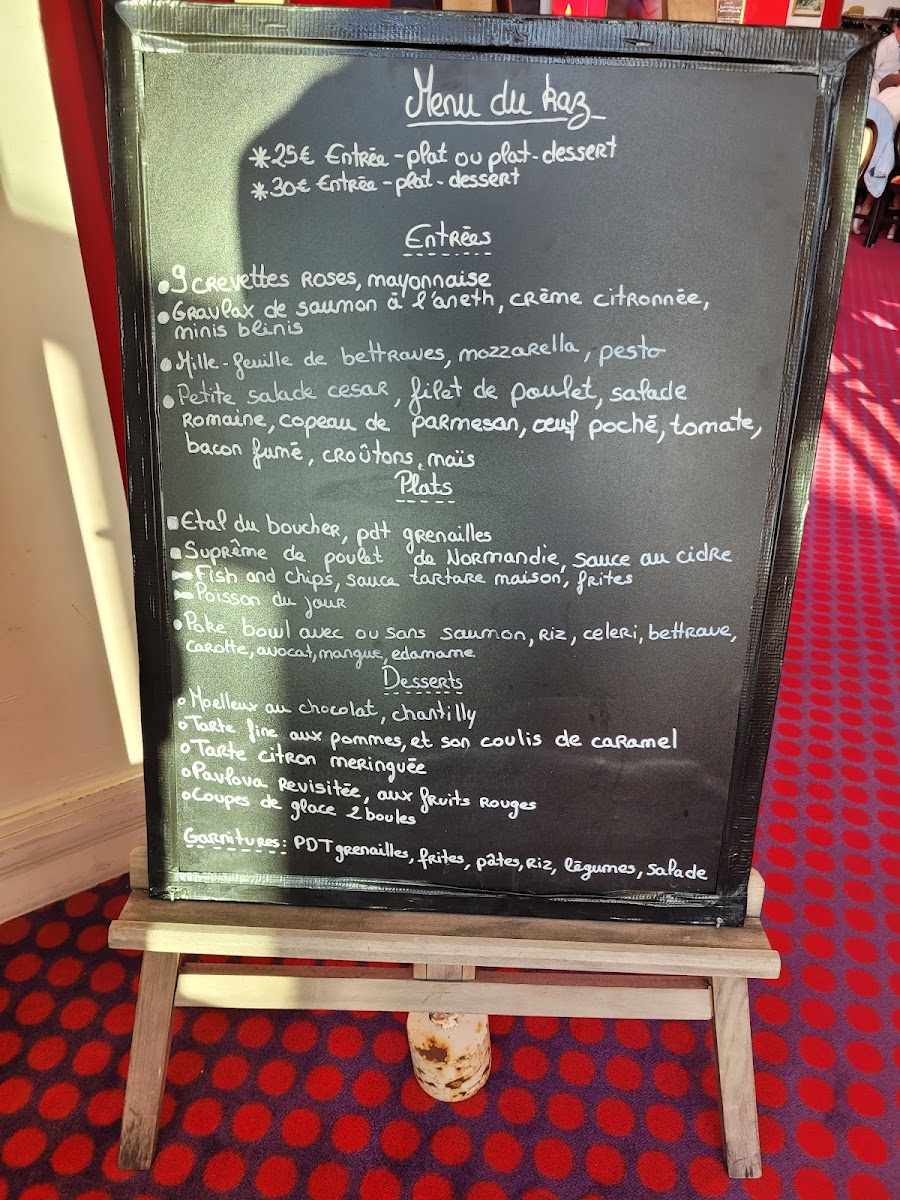 Menu du kaz
*25€ Entrée - plat ou plat - dessert
*30€ Entrée - plat - dessert
Entrées
• 9 crevettes roses, mayonnaise
• Gravlax de saumon à l'aneth, crème citronnée,
minis blinis
• Mille-feuille de bettraves, mozzarella, pesto
• Petite salade cesar, filet de poulet, salade
Romaine, copeau de parmesan, œuf poché, tomate,
bacon fumé, croûtons, maïs
Plats
Etal du boucher, pdt grenailles
Suprême de poulet de Normandie, sauce au cidre
Fish and chips, sauce tartare maison, frites
Poisson du jour
• Poke bowl avec ou sans saumon, riz, celeri, bettrave,
carotte, avocat, mangue, edamame
Desserts
o Moelleux au chocolat, chantilly
o Tarte fine aux pommes, et son coulis de caramel
o Tarte citron meringuée
o Pavlova revisitée, aux fruits rouges
o Coupes de glace 2 boules
Garnitures: PDT grenailles, frites, pâtes, riz, légumes, salade